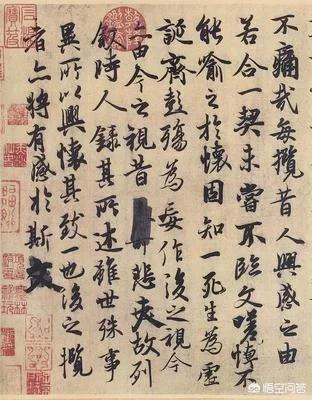 不痛哉每攬昔人興感之由
若合一契未嘗不臨文嗟悼不
能喻之於懷固知一死生為虛
誕齊彭殤為妄作後之視今
亦由今之視昔悲夫故列
敘時人錄其所述雖世殊事
異所以興懷其致一也後之攬
者亦將有感於斯文
悟空问答